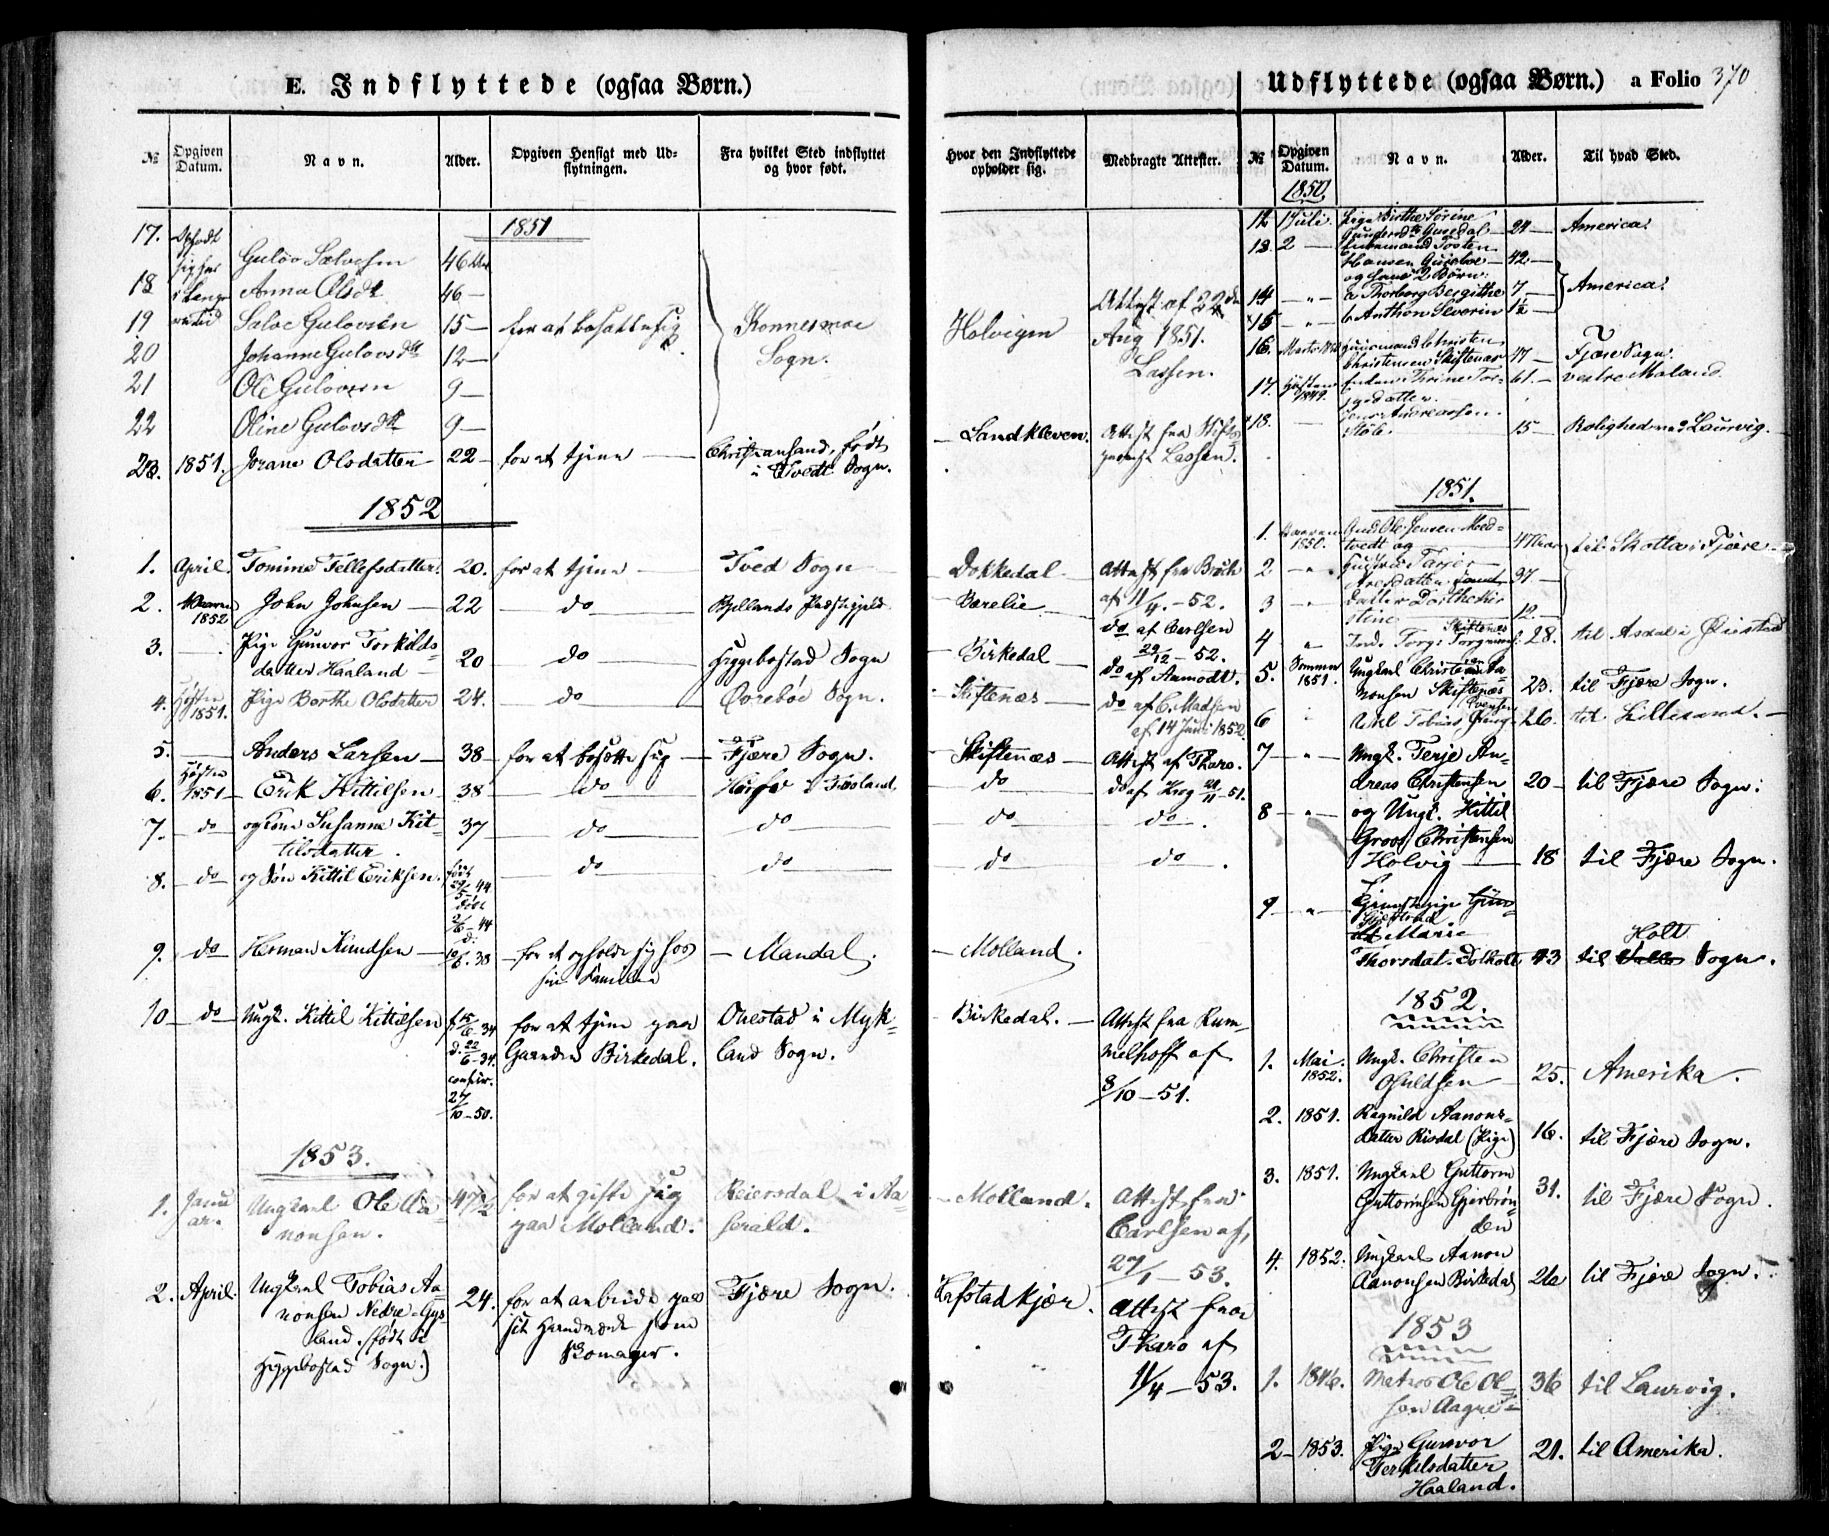 E. Indflyttede (ogsaa Børn.)
№ Opgiven Datum. Navn. Alder. Opgiven Hensigt med Udflytningen. Fra hvilket Sted indflyttet og hvor født.
Hvor den Indflyttede opholder sig. Medbragte Attester.
1851
17. Gulov Salvesen 46 Aar
18 Anna Olsdt 46 —
19 Salve Gulovsen 15 — for at bosætte sig Konnesmoe Sogn. Holvigen Attest af 22de Aug 1851. Lassen.
20 Johanne Gulovsdtt 12 —
21 Ole Gulovsen 9 —
22 Oline Gulovsdtt 9 —
23. 1851. Jorane Olsdatter 22 — for at tjene — Christiansand, født i Tvedt Sogn. — Landkleven. Attest fra Lassen.
1852
1. April. Tomine Tellefsdatter. 20. for at tjene — Tved Sogn Dokkedal — Attest fra
af 11/4. — 52.
2. 1852 John Johnsen — 22 — do — Bjellands Præstegjeld — Bærelie — do af Carlsen
29/12 — 52.
3. — Pige Gunvor Torkilds-
datter Haaland — 20 — do — Hyggebostad Sogn — Birkedal do af Aamodt.
4. Høsten 1851. Pige Berthe Olsdatter 24. — do — Øvrebøe Sogn. — Skiftenæs — do af C. Madsen
af 14 Juni 1852.
5. — Anders Larsen — 38 — for at bosætte sig — Fjære Sogn. — Skiftenæs — Attest af Tharo.
6. Høsten 1851 — Erik Kittilsen 38 — do — do — do af Krog 21/11 — 51.
7. — do — og Kone Susanne Kit-
tilsdatter. 37 — do — do — do — do.
8. — do og Søn Kittil Eriksen. født 29/5 — 44 døbt 2/6 — 44 — do — do — do — do.
9. — do Herman Knudsen — d. 10/6. 38 — for at opholde sig hos
sin Familie — Mandal. — Molland.
10 — do Ungk. Kittil Kittilsen f. 15/6 — 34 d. 22/6 — 34. confir. 27/10 — 50. for at tjene paa
Gaarden Birkedal. Onestad i Myk-
land Sogn. — Birkedal. — Attest fra Rum-
melhoff af
8/10 — 51.
1853.
1. Janu-
ar. Ungkarl Ole Aa-
nonsen. 47 1/2 for at gifte sig
paa Molland. Reiersdal i Aa-
serald. — Molland. Attest fra
Carlsen af
27/1 — 53.
2. April. Ungkarl Tobias Aa-
nonsen Nedre-Gys-
land. (født i
Hyggebostad Sogn.) 24. for at arbeide paa
sit Haandværk som
Skomager. Fjære Sogn. Hafstadkjær. Attest fra
Tharo af
11/4 — 53.
Udflyttede (ogsaa Børn.) a Folio 370
№ Opgiven Datum. Navn. Alder. Til hvad Sted.
1850
12 1 Juli. Pige Birthe Sørine
24 — America.
13. 2 — Huusmand Tosten
Hansen
og hans 2 Børn: 42 —
14 — „ — a Thorborg Bergithe 7 — America.
15 — „ — b Anthon Severin 1 1/2 —
16. Huusmand Christen
Christensen Skiftenæs 47 — Fjære Sogn.
17. Høsten 1849. Enken Thrine Tor-
gesdatter. 61. — vestre Moland.
18. Jens Andreassen
15 — Rolighed ved Laurvig. —
1851.
1. 1850. Ole Jensen Mold-
tvedt og 47 Aar til Skotta i Fjære —
2 — „ Hustru Tarjer
Aresdatter 37 —
3 — „ — Datter Dorthe Kir-
stine 12. —
4 „ Ind. Torgi Torgrims. Skiftenæs 28. til Asdal i Øiestad
5. Sommer 1851. Ungkarl Christian Aa-
nonsen Skiftenæs 23. til Fjære Sogn.
6 Ukl Tobias Svensen 26. til Lillesand. —
7 — „ — Ungk. Terje An-
dreas Christensen 20 — til Fjære Sogn.
8 — „ — og Ungk. Kittil
Groos Christensen
Holvig — 18 til Fjære Sogn.
9 — „ —
Marie
Thorsdat. Dolholt 43 til Holt Sogn.
1852.
1. Mai. 1852. Ungk. Christen
Osuldsen 25. Amerika.
2. 1851. Ragnild Aanons-
datter Risdal (Pige) 16. til Fjære Sogn.
3. 1851. Ungkarl Guttorm
Guttormsen Gjerbrøn-
den 31. til Fjære Sogn.
4. 1852. Ungkarl Aanon
Aanonsen Birkedal 26 til Fjære Sogn.
1853
1. 1846. Matros Ole Ol-
sen Aagre — 36 til Laurvig.
2 — 1853. Pige Gunvor
Terkilsdatter
Haaland. 21. til Amerika.